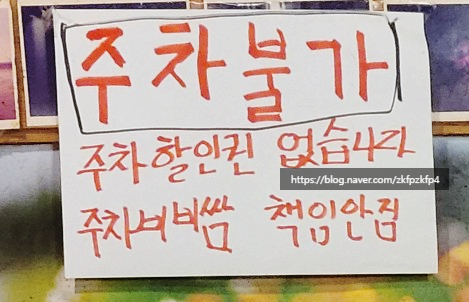 주차불가
주차할인권 없습니다
https://blog.naver.com/zkfpzkfp4
주차비비쌈 책임안짐